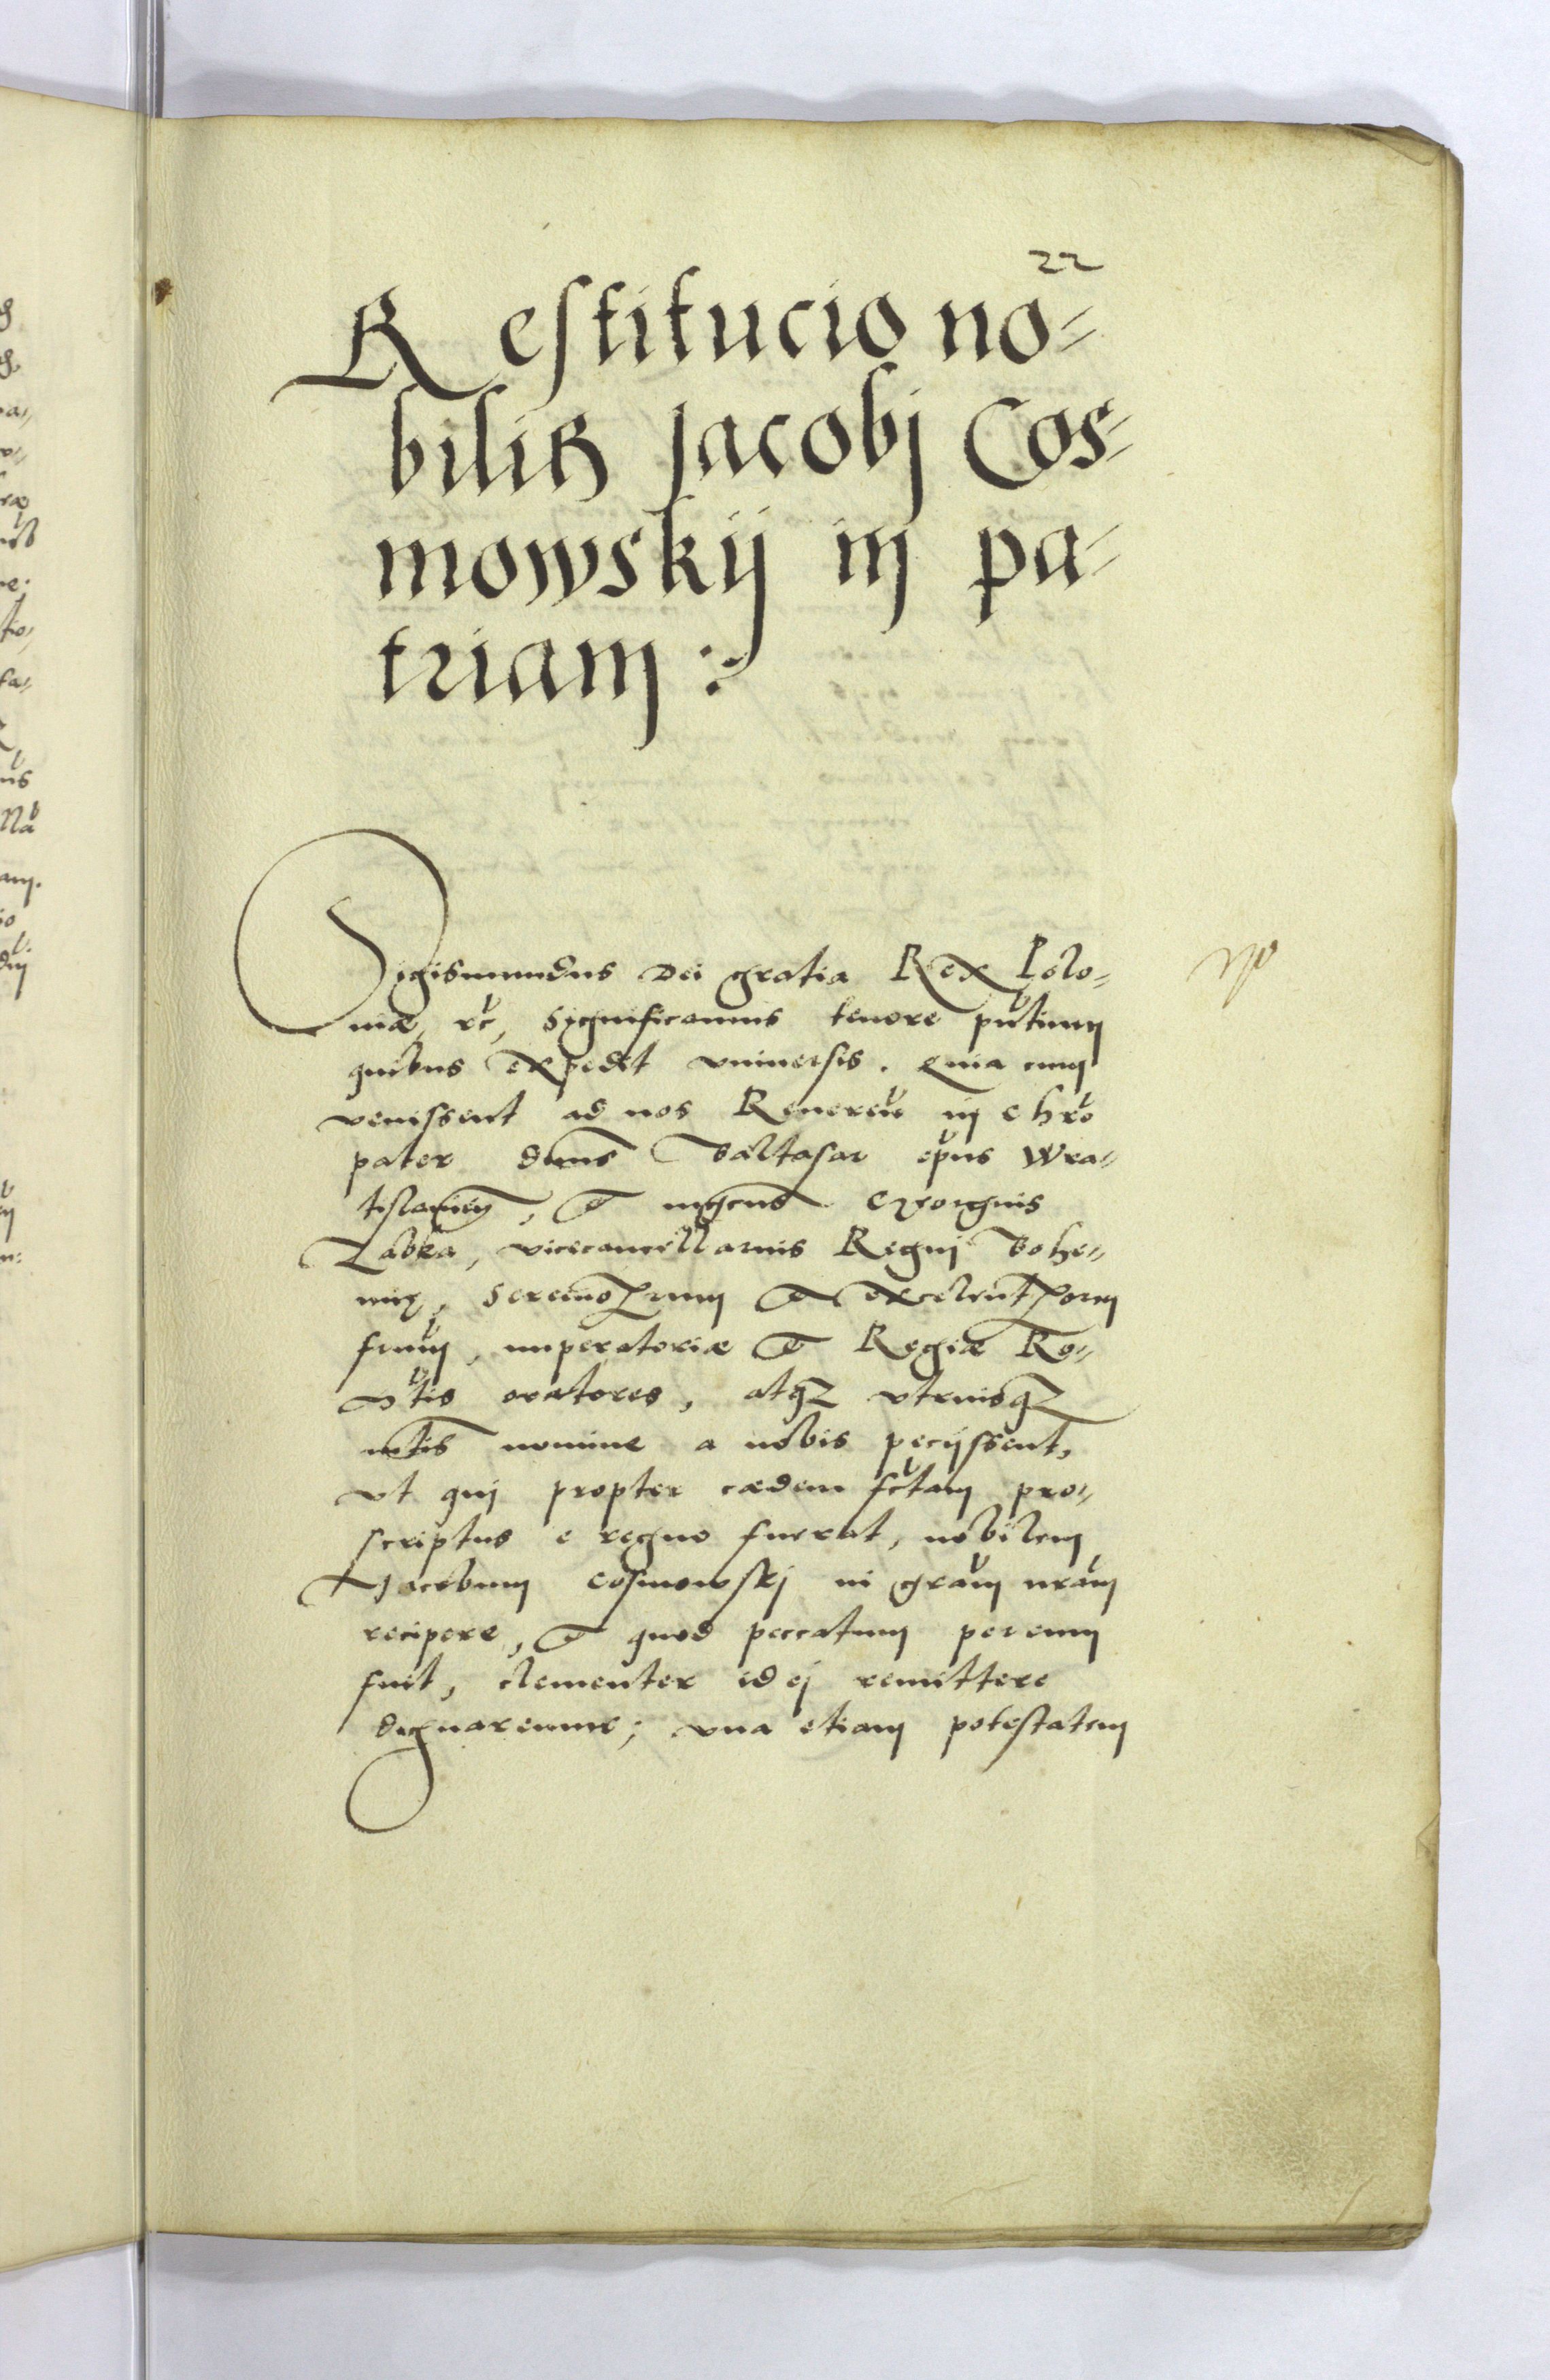 22
Restitucio no=
bilis Jacobj Cos=
mowskij in pa=
triam :
Sigismundus Dei gratia Rex Polo=
niæ, &c, Significamus tenore pntium
quibus expedit vniuersis. Quia cum
venissent ad nos Reueren in Chro
pater dnns Baltasar epus Wra=
tislauien, et mgcus Georgius
Zabka, vicecancellarius Regni Bohe=
mię, Serenorum et excelentorum
frum, imperatoriæ et Regiæ Ro=
mtis oratores, atq3 vtriusq3
mtis nomine a nobis pecijssent,
vt qui propter cædem fctam pro=
scriptus e regno fuerat, nobilem
Jacobum Cosmowskj in gram nram
recipere, et quod peccatum per eum
fuit, clementer id ej remittere
dignaremur; vna etiam potestatem